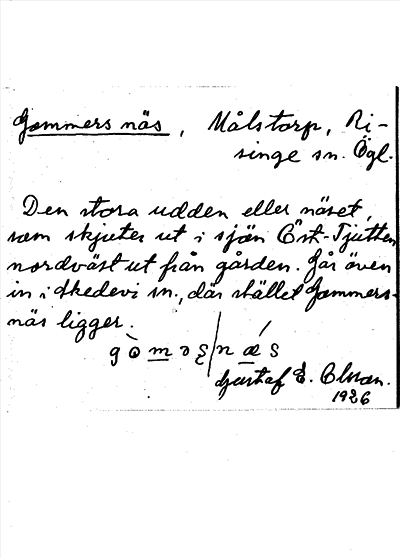 Gammersnäs, Målstorp, Ri-
singe sn. Ögl.
Den stora udden eller näset,
som skjuter ut i sjön Öst-Tjutten
nordväst ut från gården. Går även
in i Skedevi sn., där stället Gammers-
näs ligger.
Gustaf E. Olsson.
1926